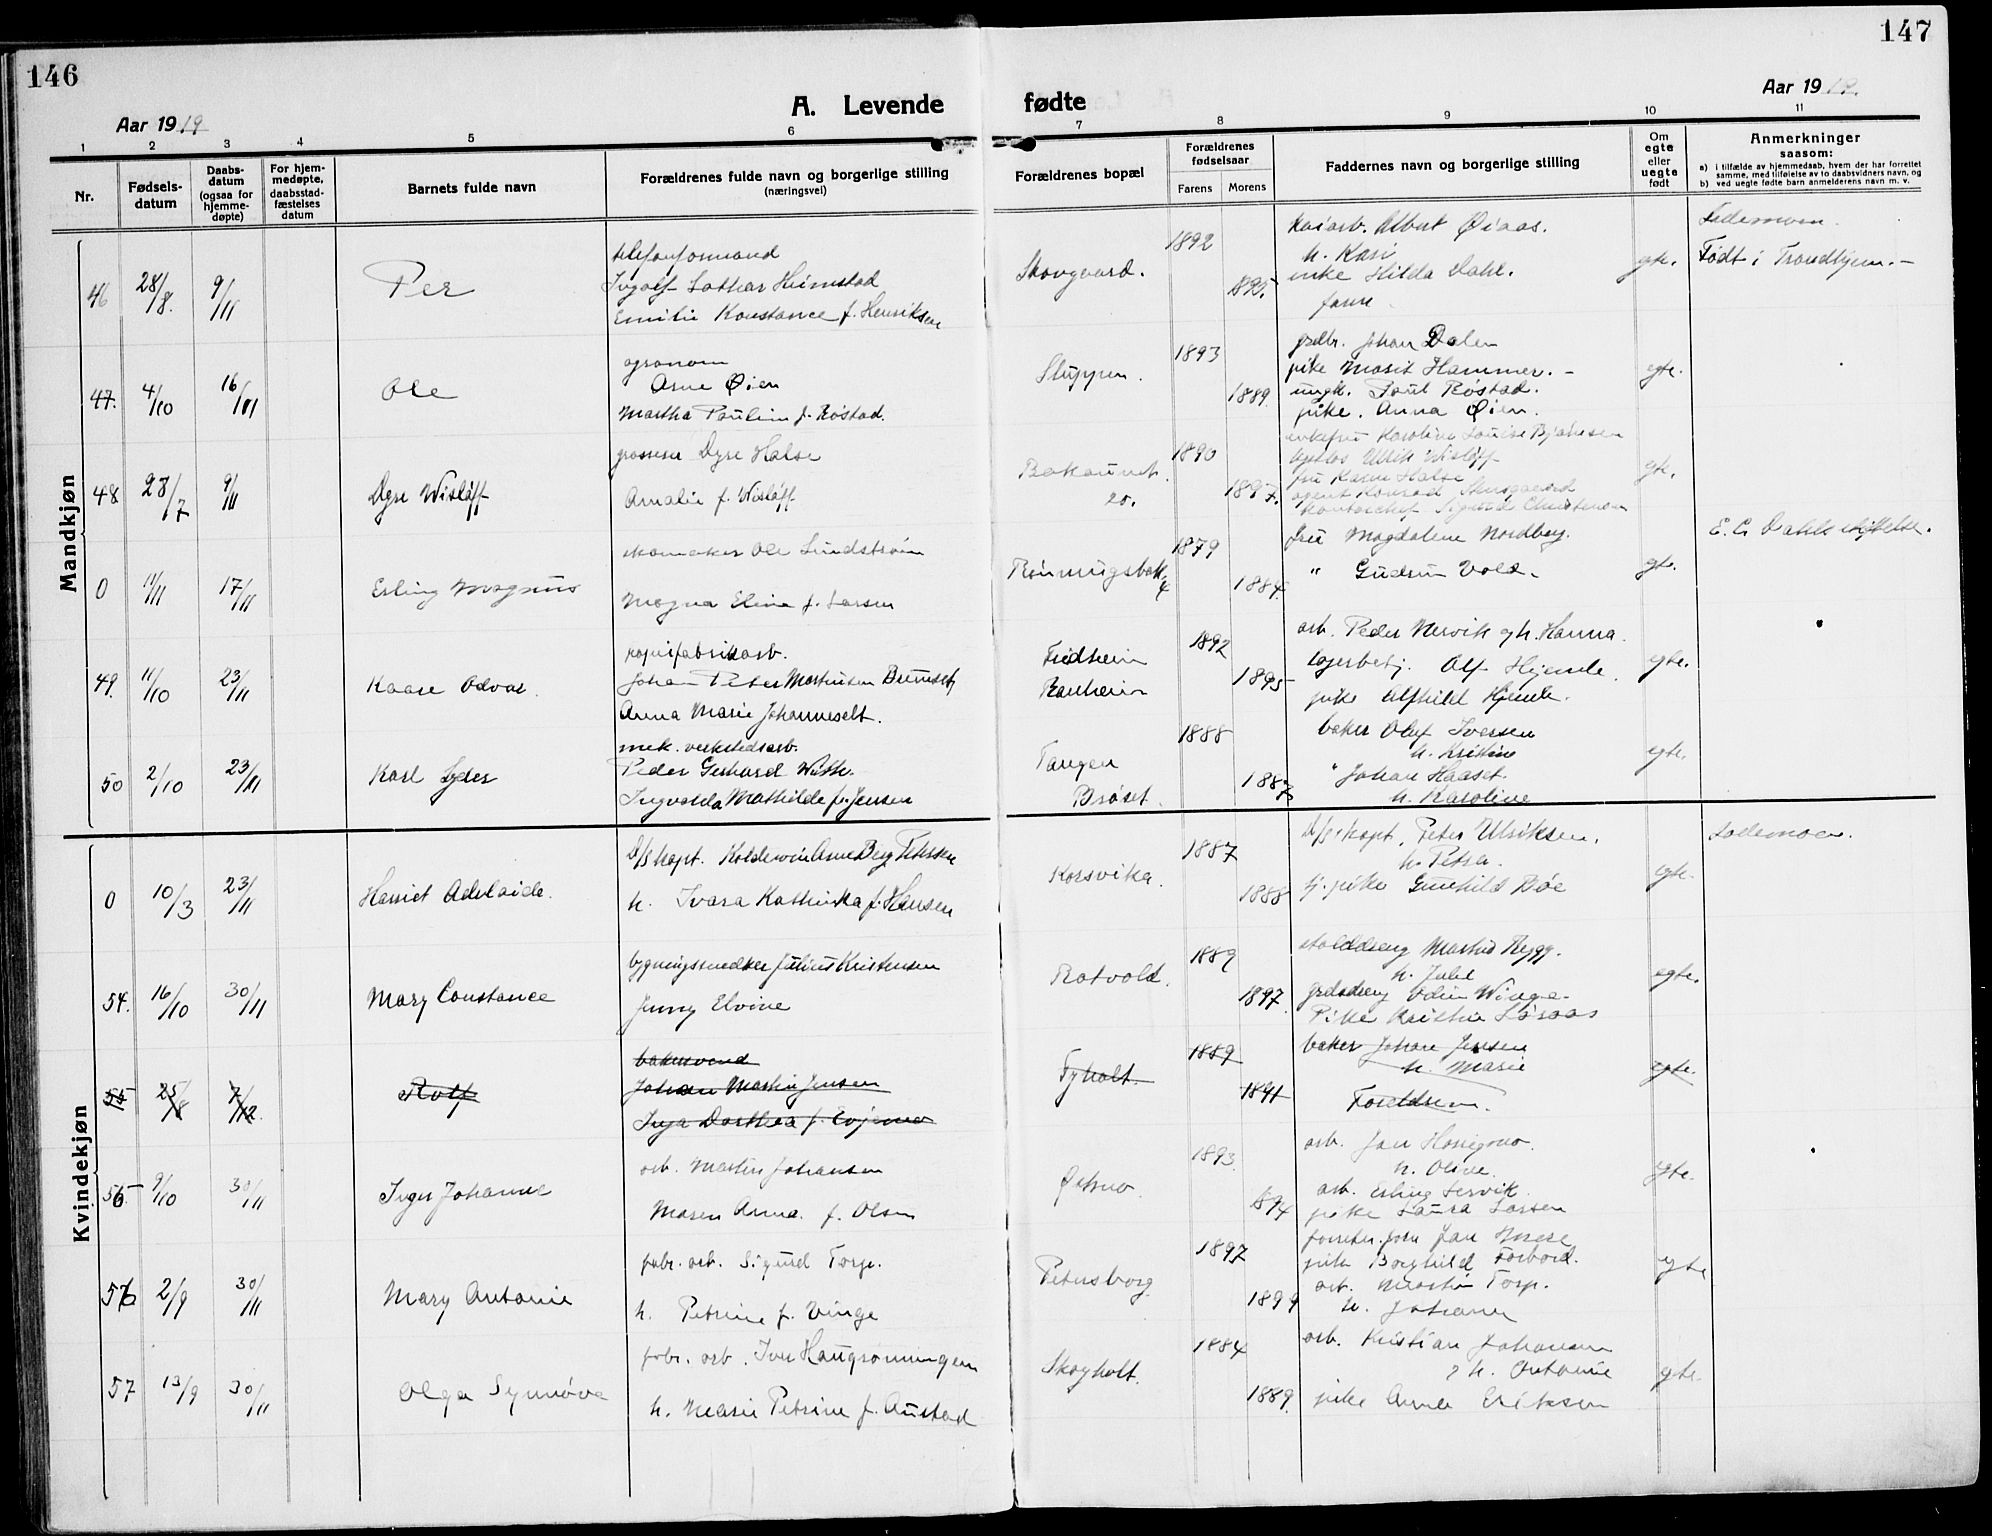 146
147
A. Levende
fødte
Aar 1919
Aar 1919.
1 2 3 4 5 6
7 8 9 10 11
Nr.
Fødsels-
datum
Daabs-
datum
(ogsaa for
hjemme-
døpte)
For hjem-
medøpte,
daabsstad-
fæstelses
datum
Barnets fulde navn
Forældrenes fulde navn og borgerlige stilling
(næringsvei)
Forældrenes bopæl
Forældrenes
fødselsaar
Farens Morens
Faddernes navn og borgerlige stilling
Om
egte
eller
uegte
født
Anmerkninger
saasom:
a) i tilfælde av hjemmedaab, hvem der har forrettet
samme, med tilføielse av to daabsvidners navn, og
b) ved uegte fødte barn anmelderens navn m. v.
Mandkjøn
46 28/8. 9/11
Per
telefonformand
Ingolf Lothar Heimstad
Emilie Konstance f. Henriksen
Skovgaard.
1892
1895.
Albert Øiaas.
h. Kari
enke Hilda Dahl.
egte.
Lademoen.
Født i Trondhjem. -
47. 4/10 16/11
Ole
agronom
Arne Øien
Martha Pauline f. Røstad.
Sluppen.
1893
1889.
grdbr. Johan Dalen
pike Marit Hammer. -
ungk. Paul Røstad.
pike. Anna Øien.
egte.
48 28/7 9/11
Dyre Wisløff
grosserer Dyre Halse
Amalie f. Wisløff
Bakaunet
20.
1890
1897.
enkefru Karoline Louise
Ulrik Wisløff
fru Karen Halse
agent Konrad
kontorchef Sigurd Christensen
egte.
0 11/11 17/11
Erling Magnus
skomaker Ole Lundstrøm
Magna Eline f. Larsen
Rønningsbak.
4
1879
1884.
fru Magdalene Nordberg.
" Gudrun Vold.
egte.
E. C. Dahls stiftelse.
49. 11/10 23/11
Kaare Odvar.
papirfabrikarb.
Johan Peter Martinsen
Anna Marie Johannesdt.
Fridheim
Ranheim
1892
1895
arb. Peder Nervik og h. Hanna.
lagerbetj. Alf Hjemle.
pike Alfhild Hjemle.
egte.
50 2/10 23/11
Karl Lyder
mek. verkstedsarb.
Peder Gerhard With.
Ingvalda Mathilde f. Jensen
Tangen
Brøset.
1888
1887
baker Oluf Iversen
h. Kristine
" Johan Haaset.
h. Karoline
egte.
Kvindekjøn
0 10/3 23/11
Harriet Adelaide.
D/S kapt. Kolderwin Arne Berg Petersen
h. Ivara Kathinka f. Hansen
Korsvika.
1887
1888
D/S kapt. Peter Ulriksen.
h. Petra.
tj. pike Gunhild Bøe
egte.
Lademoen.
54. 16/10 30/11
Mary Constance
bygningssnedker Julius Kristensen
Jenny Elvine
Rotvold.
1889
1897.
stalddreng Martin Rygg.
h. Julie
grdsdreng Odin Winge
Pike Kristine
egte.
55 25/8 7/12.
Rolf
bakersvend
Johan Martin Jensen
Inga Dorthea f. Evjemo
Tyholt.
1889
1891
baker Johan Jensen
h. Marie
Foreldrene.
egte.
56 9/10 30/11
Inger Johanne
arb. Martin Johansen
Maren Anna. f. Olsen
1893.
1894
arb. Jan
h. Oline.
arb. Erling Lervik.
pike Laura Larsen
egte.
56 2/9 30/11
Mary Antonie
fabr. arb. Sigurd Torp.
h. Petrine f. Vinge
Petersborg
1897
1899
pike Borghild Forbord.
arb. Martin Torp.
h. Johanne
egte
57 13/9 30/11
Olga Synnøve
fabr. arb. Iver Haugrønningen
h. Marie Petrine f. Austad
Skogholt.
1884
1889.
arb. Kristian Johansen
og h. Antonie
pike Anna Eriksen
egte.